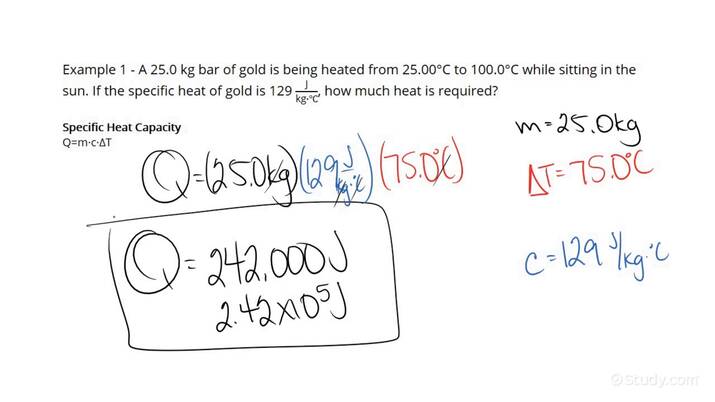 Example 1 - A 25.0 kg bar of gold is being heated from 25.00°C to 100.0°C while sitting in the
sun. If the specific heat of gold is 129 J/kg·°C, how much heat is required?
Specific Heat Capacity
Q=m·c·ΔT
Q=(25.0kg)(129 J/kg·°C)(75.0°C)
Q=242,000J
2.42x10⁵J
m=25.0kg
ΔT=75.0°C
c=129 J/kg·°C
©Study.com